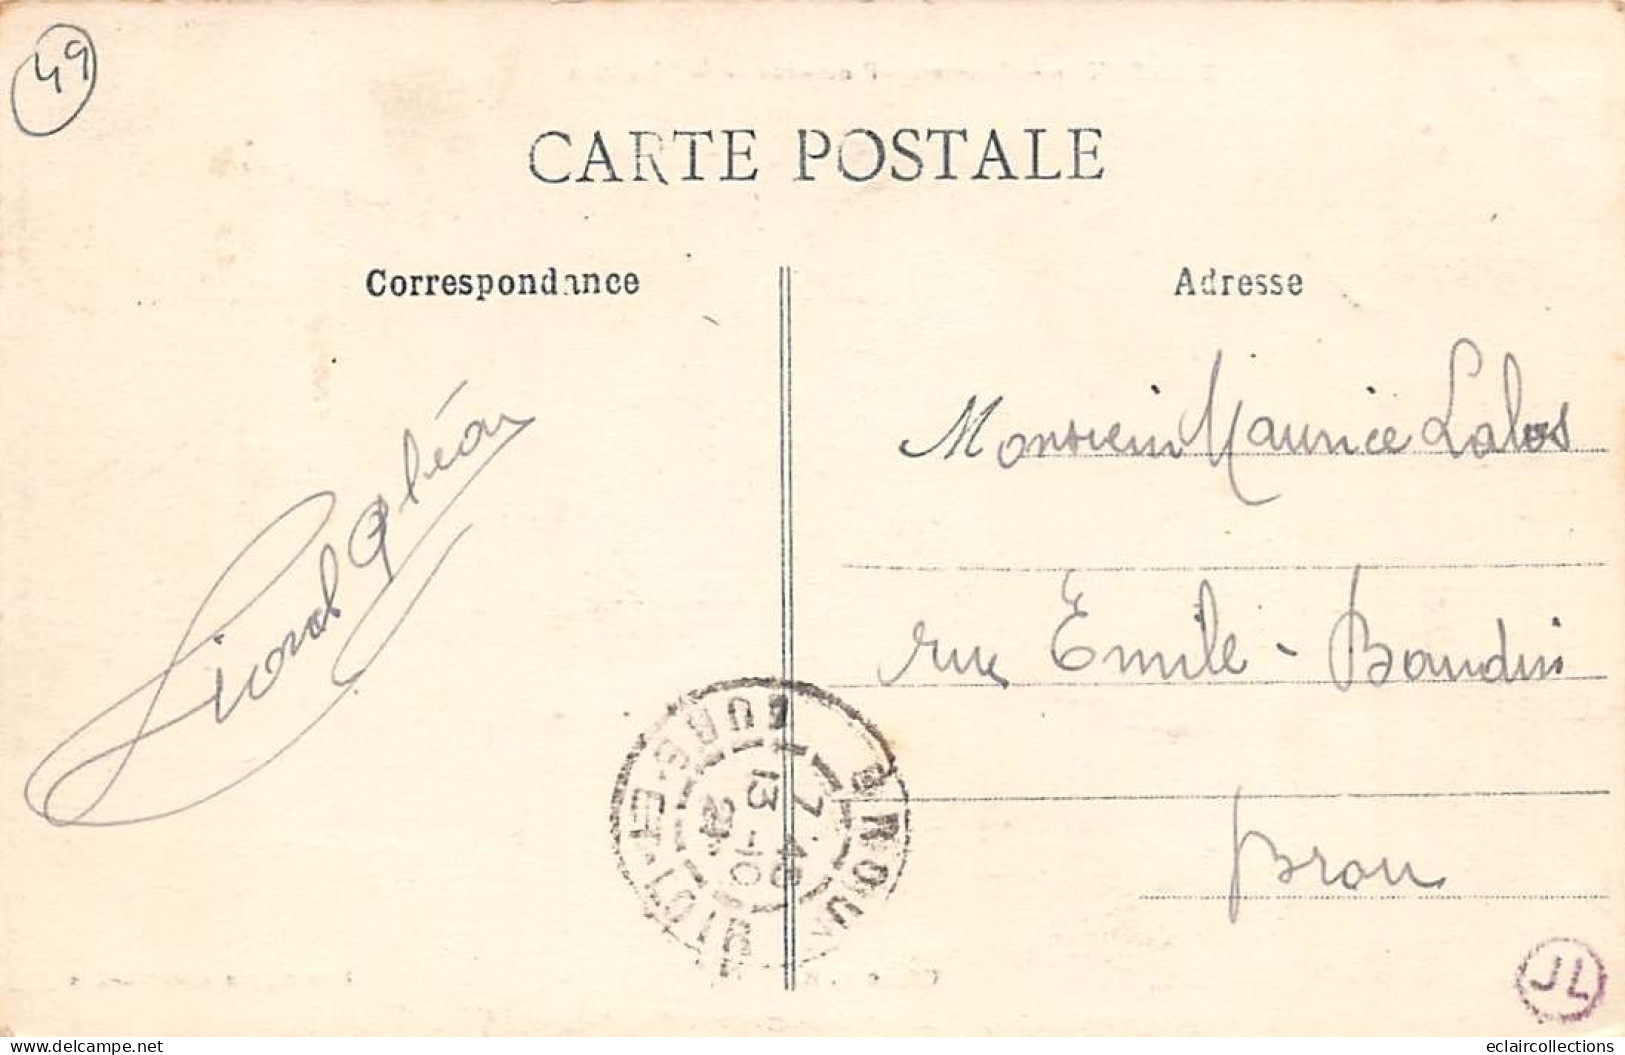 49
CARTE POSTALE
Correspondance
Adresse
Monsieur Maurice Lalos
rue Emile-Baudin
Brou
7·40
13-10
JL
www.delcampe.net
eclaircollections